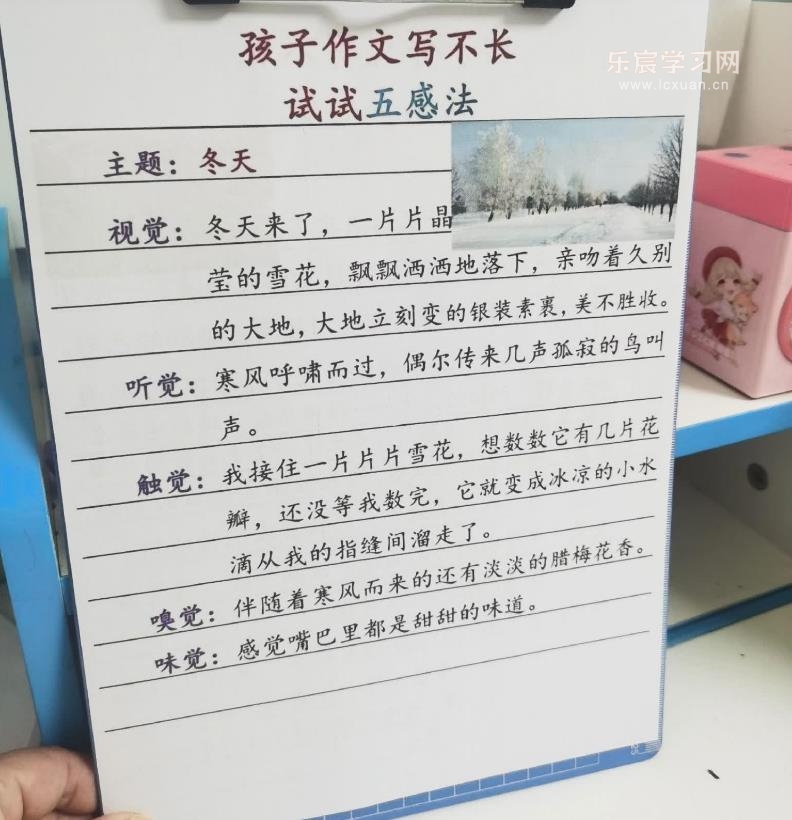 孩子作文写不长
乐宸学习网
www.lcxuan.cn
试试五感法
主题：冬天
视觉：冬天来了，一片片晶
莹的雪花，飘飘洒洒地落下，亲吻着久别
的大地，大地立刻变的银装素裹，美不胜收。
听觉：寒风呼啸而过，偶尔传来几声孤寂的鸟叫
声。
触觉：我接住一片片片雪花，想数数它有几片花
瓣，还没等我数完，它就变成冰凉的小水
滴从我的指缝间溜走了。
嗅觉：伴随着寒风而来的还有淡淡的腊梅花香。
味觉：感觉嘴巴里都是甜甜的味道。